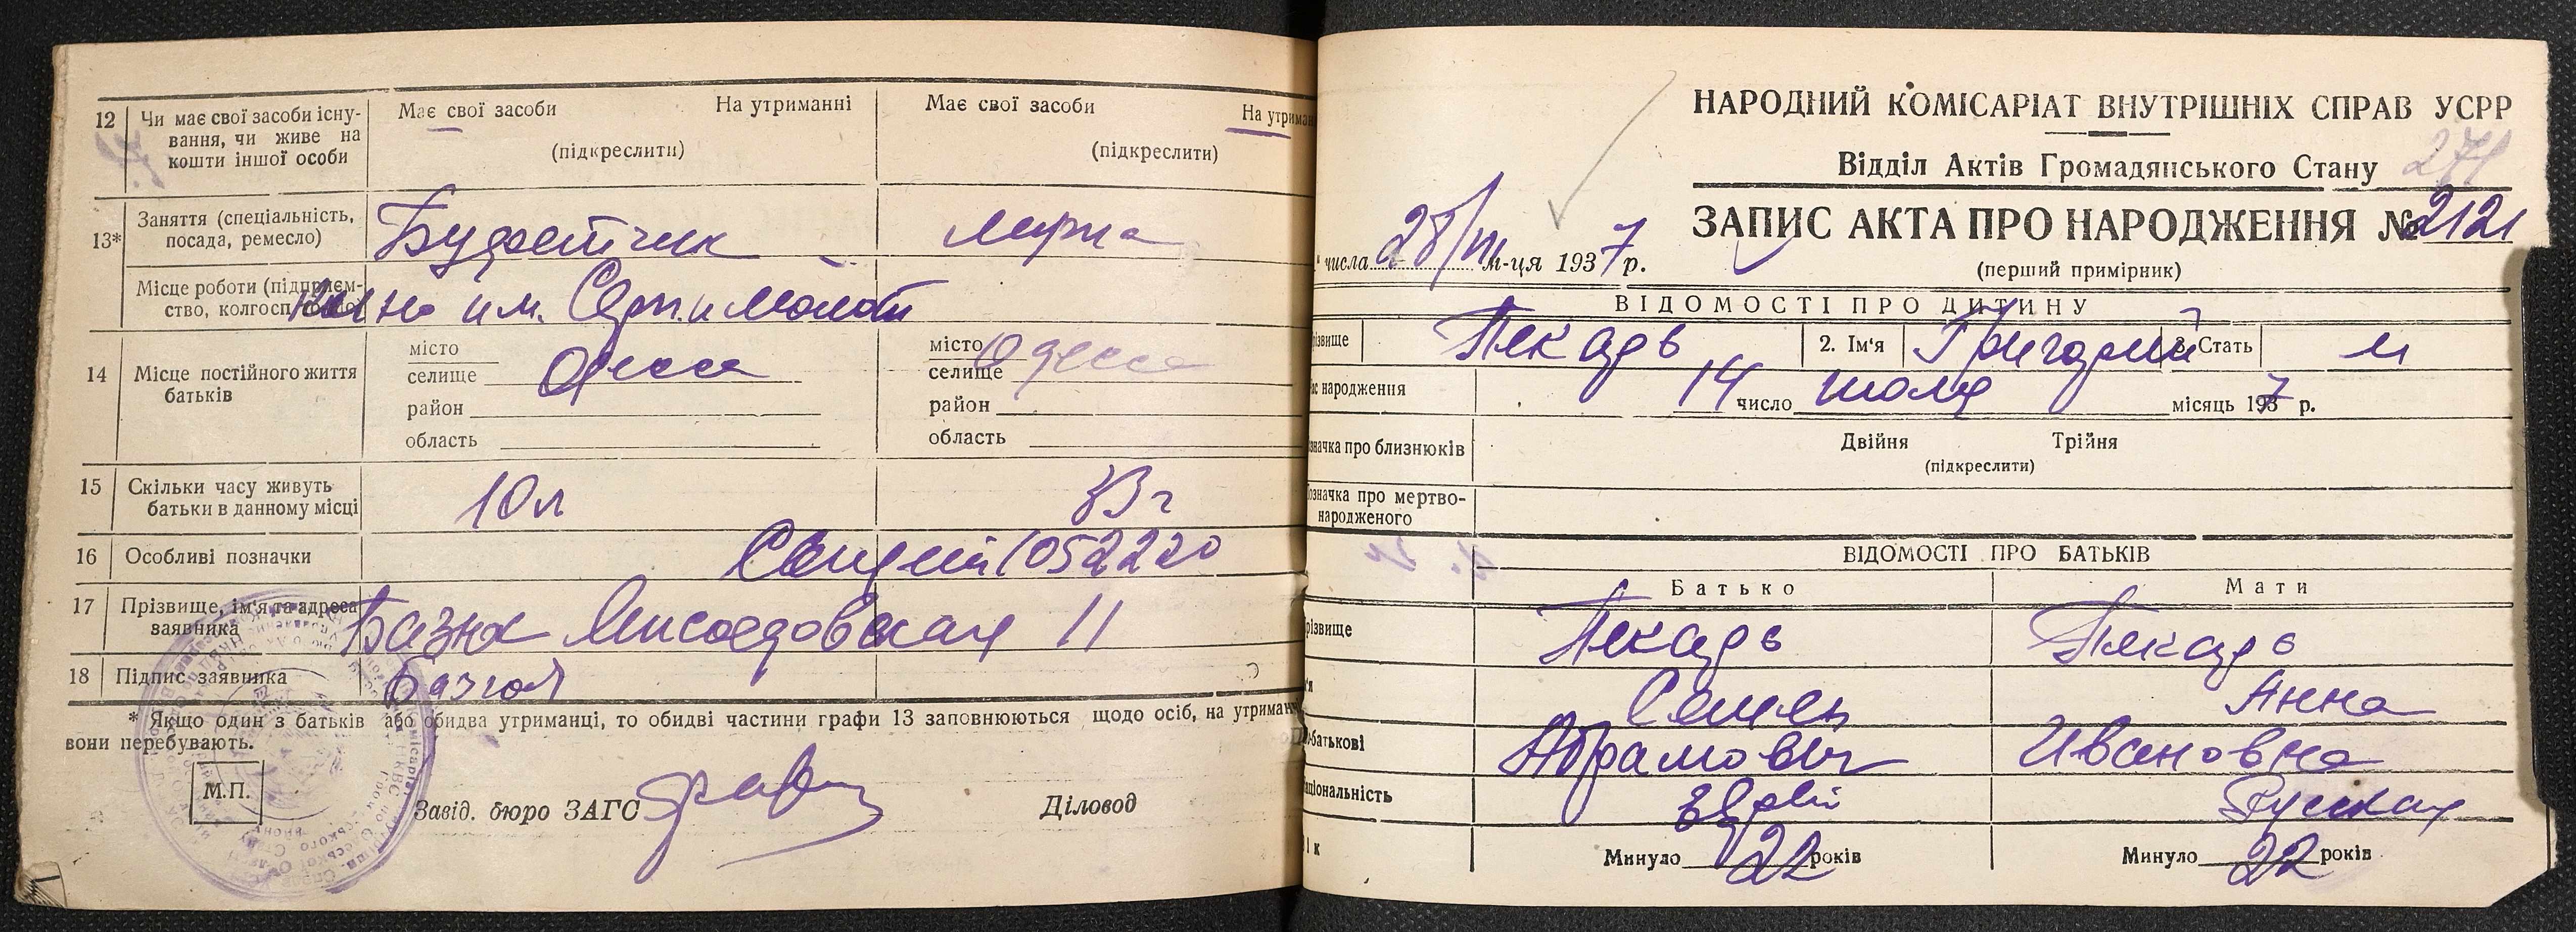 12 Чи має свої засоби існування, чи живе на кошти іншої особи
Має свої засоби На утриманні
(підкреслити)
Має свої засоби На утриман
(підкреслити)
13* Заняття (спеціальність, посада, ремесло)
Місце роботи (підприємство, колгосп
им. Серп и Молот
14 Місце постійного життя батьків
місто
селище Одесса
район
область
місто Одесса
селище
район
область
15 Скільки часу живуть батьки в данному місці
10 л
16 Особливі позначки
1052220
17 Прізвище, ім'я та адреса заявника
Мясоедовская 11
18 Підпис заявника
* Якщо один з батьків або обидва утриманці, то обидві частини графи 13 заповнюються щодо осіб, на утриман
вони перебувають.
М.П.
Завід. бюро ЗАГС
Діловод
НАРОДНИЙ КОМІСАРІАТ ВНУТРІШНІХ СПРАВ УСРР
Відділ Актів Громадянського Стану
271
ЗАПИС АКТА ПРО НАРОДЖЕННЯ № 2121
числа 28/VII м-ця 1937 р.
(перший примірник)
ВІДОМОСТІ ПРО ДИТИНУ
різвище Пекарь 2. Ім'я Григорий 3. Стать м
ас народження 14 число июля місяць 1937 р.
значка про близнюків
Двійня Трійня
(підкреслити)
означка про мертвонародженого
ВІДОМОСТІ ПРО БАТЬКІВ
Батько Мати
різвище Пекарь Пекарь
'я Семен Анна
о-батькові Абрамович Ивановна
аціональність Еврей Русская
ік Минуло 22 років Минуло 22 років